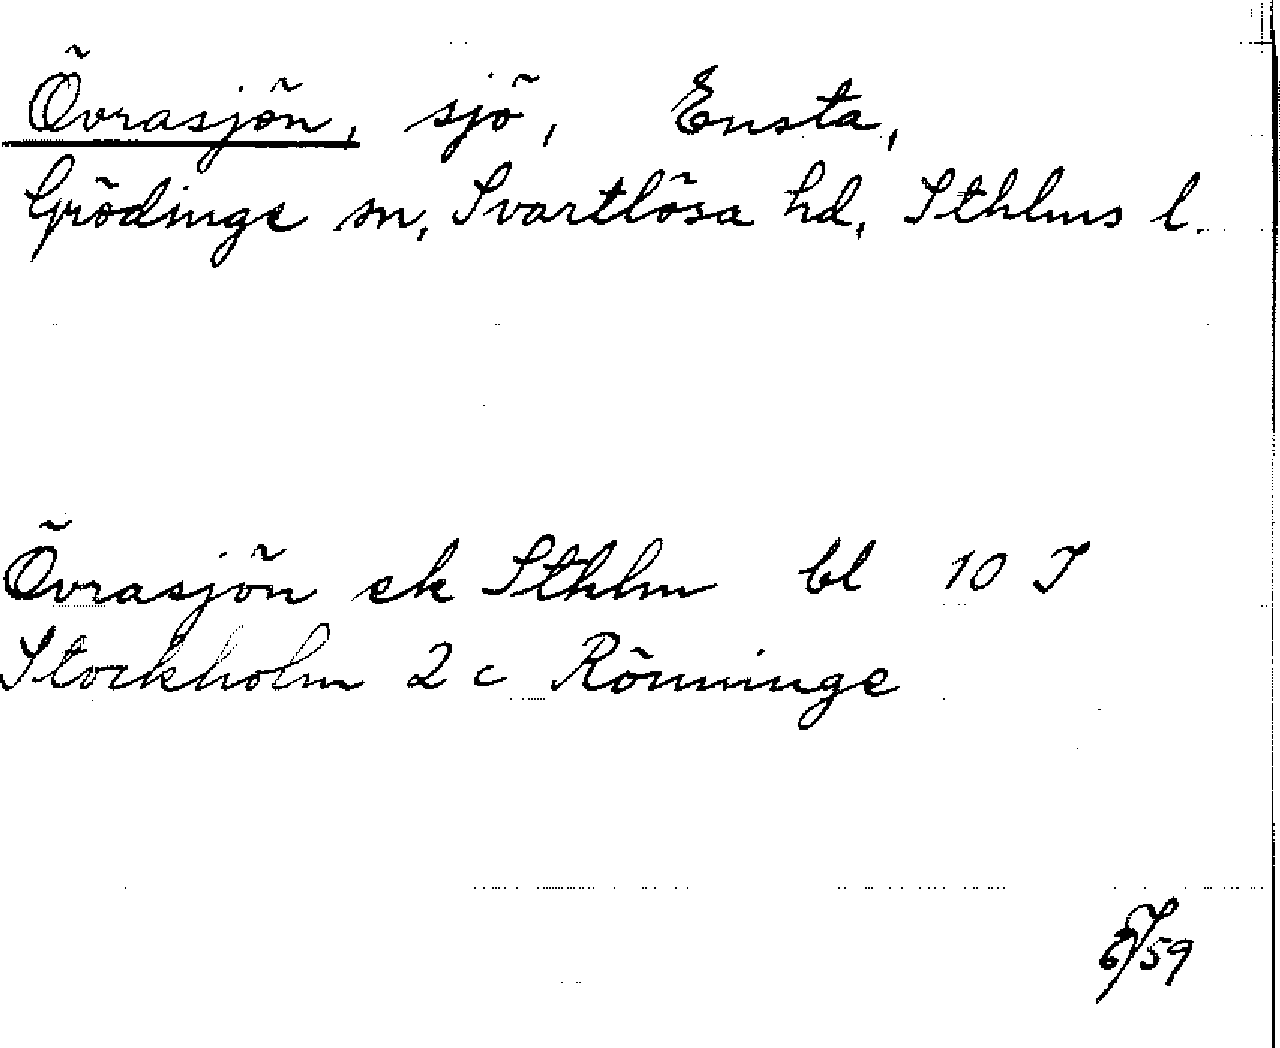 Övrasjön, sjö, Ensta,
Grödinge sn, Svartlösa hd, Sthlms l.
Övrasjön ek Sthlm bl 10 I
Stockholm 2 c Rönninge